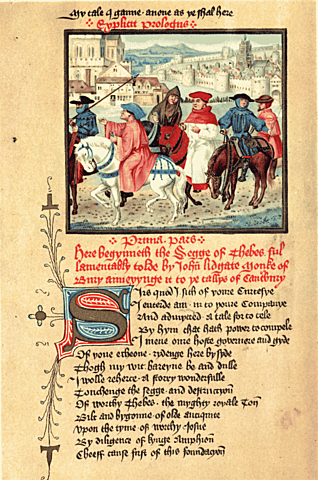 My tale I ganne anone as ye shal here
Explicit Prologus
Prima Pars
Here begynneth the Segge of Thebes ful
lamentably tolde by John Lidgate Monke of
Bury anneyynge it to ye tallys of Cauntbry
Sirs quod I sith of youre Curtesye
I entrede am in to youre Companye
And admytted a tale for to telle
By hym that hath power to compele
I mene oure hoste governere and gyde
Of youe echeone rydenge here by syde
Thogh my wit bareyne be and dulle
I wolle reherce a story wonderfulle
Touchenge the segge and destruccyon
Of worthy Thebes the myghty royale Ton
Bilt and bygonne of olde antiquite
Upon the tyme of worthy Josue
By diligence of kynge Amphion
Cheef cause first of this foundacyon